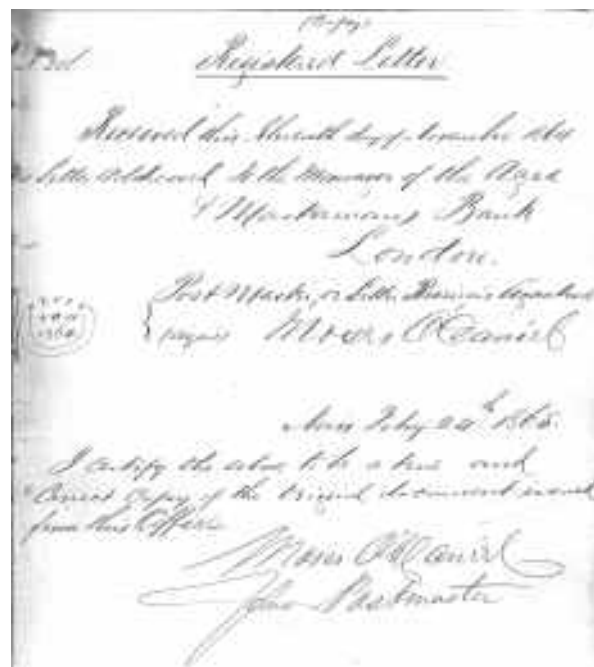 (Copy)
Registered Letter
Received this Eleventh day of November 1864
a Letter addressed to the Manager of the Agra
& Mastermans Bank
London.
Post Master, or Letter Receiver's Signature
Moses O'Daniel
Feby 24th 1865.
I certify the above to be a true and
Correct Copy of the Original document issued
from this Office
Moses O'Daniel
Postmaster